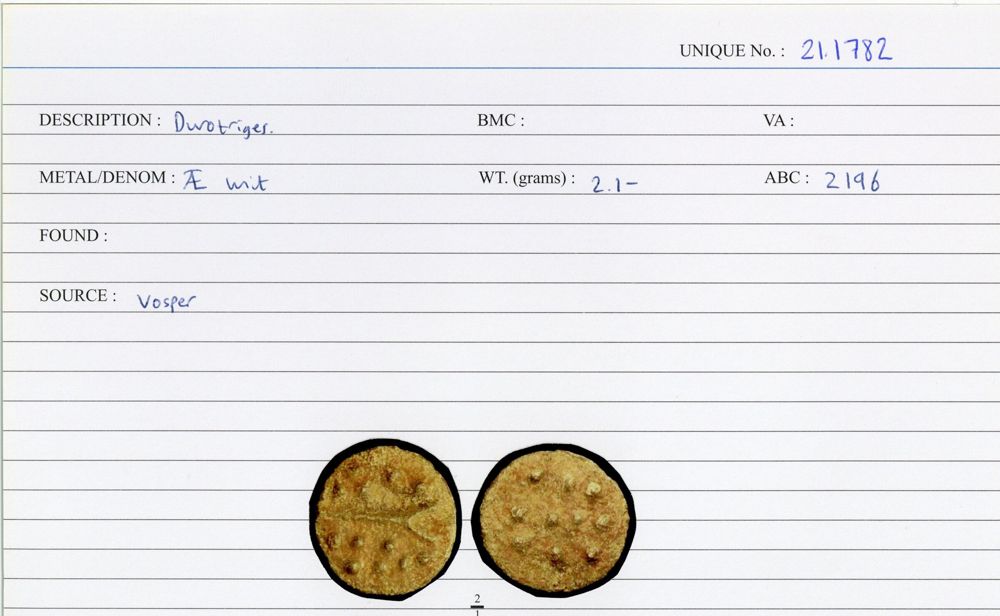 UNIQUE No. : 21.1782
DESCRIPTION : Durotriges. BMC : VA :
METAL/DENOM : Æ unit WT. (grams) : 2.1- ABC : 2196
FOUND :
SOURCE : Vosper
2
1